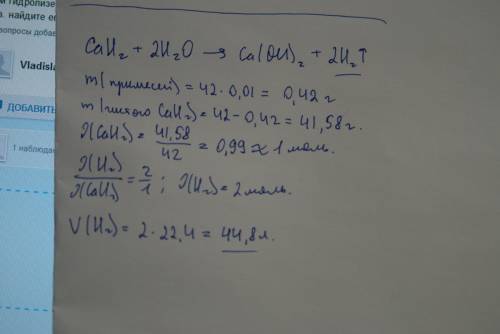 й гидролизе
а. найдите ее
вопросы добав
Vladisla
ДОБАВИТЬ
1 наблюдае
CaH₂ + 2H₂O → Ca(OH)₂ + 2H₂↑
m(примесей) = 42·0,01 = 0,42 г
m(чистого CaH₂) = 42 - 0,42 = 41,58 г.
ν(CaH₂) = 41,58/42 = 0,99 ≈ 1 моль.
ν(H₂)/ν(CaH₂) = 2/1 ; ν(H₂) = 2 моль.
V(H₂) = 2·22,4 = 44,8 л.